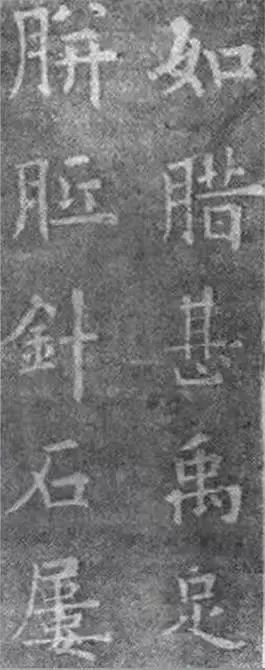 如腊甚禹足
胼胝針石屢